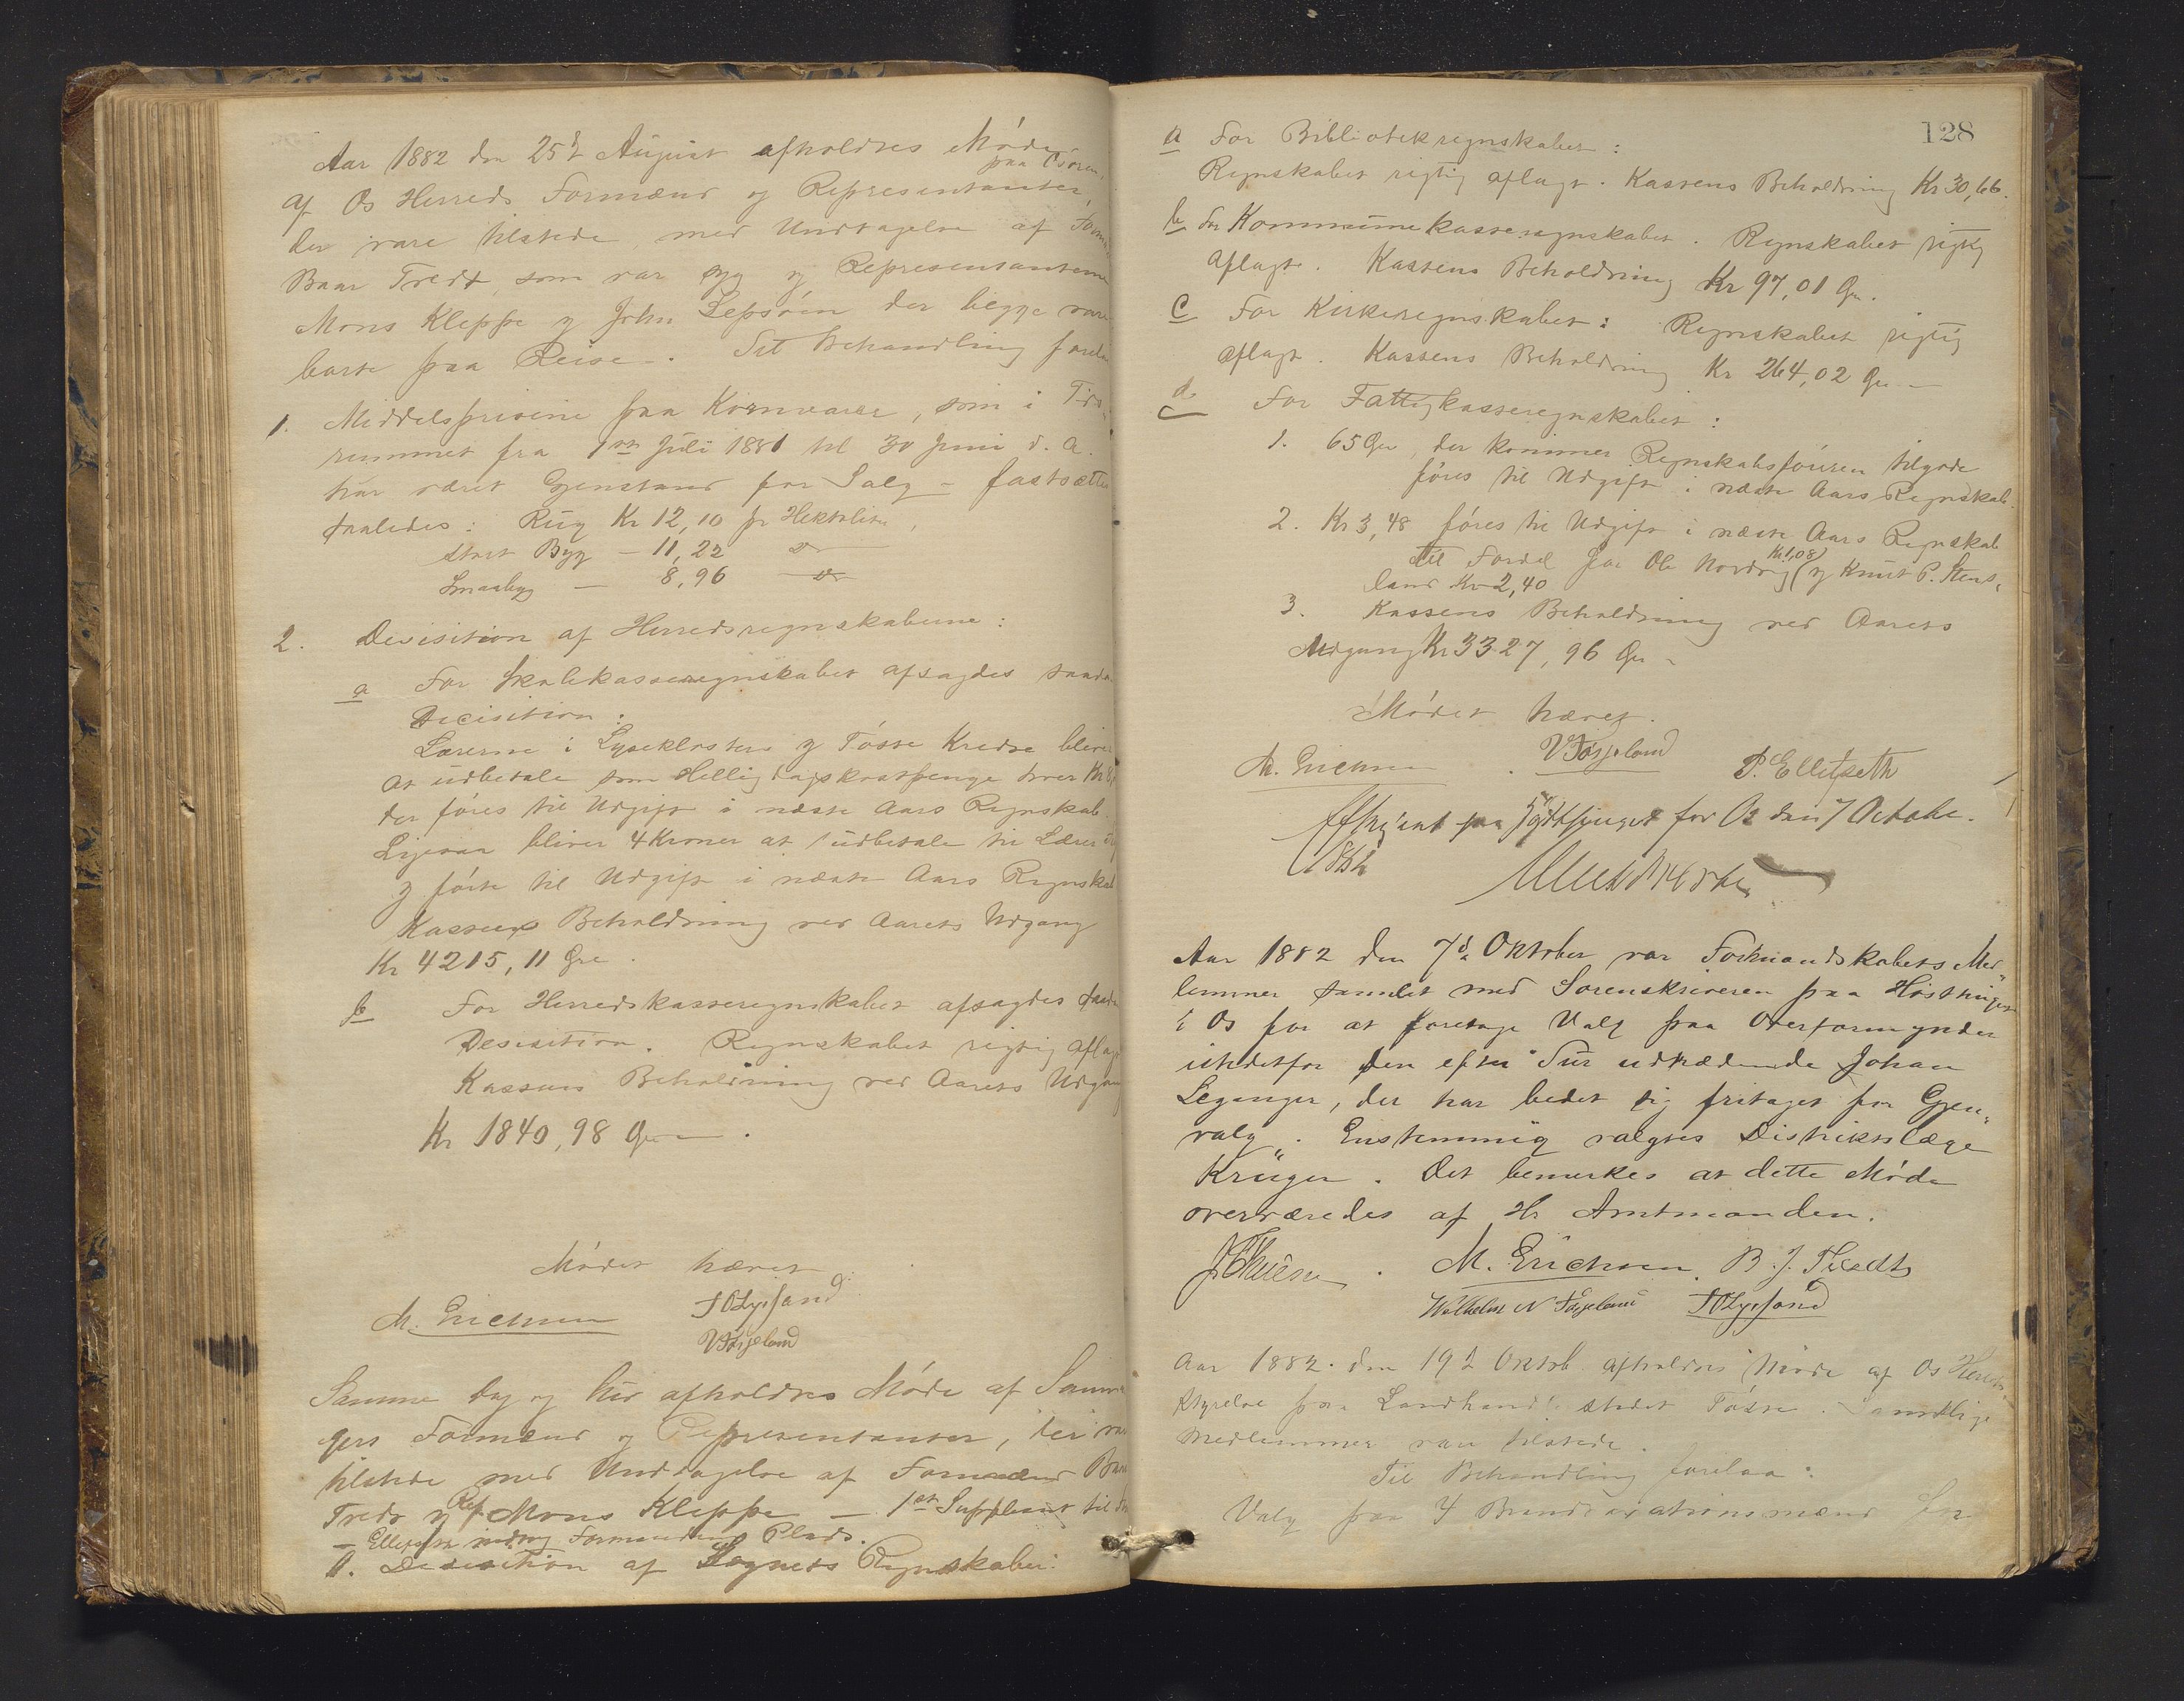 Aar 1882 den 25d August afholdtes Møde
paa Osøren
af Os Herreds Formænd og Representanter,
der vare tilstede med Undtagelse af Form
Baar Tredt, som var syg og Representanterne
Mons Kleppe og John Lepsøen der begge vare
borte paa Reise. Til Behandling forelaa
1. Middelsprisene paa Kornvarer, som i Tids-
rummet fra 1ste Juli 1881 til 30 Juni d. A.
har været Gjenstand for Salg - fastsættes
saaledes: Rug Kr 12,10 pr Hektoliter,
stort Byg - 11,22 do
Smaabyg - 8,96 do
2. Desisition af Herredsregnskaberne:
a For Skolekasseregnskabet afsagdes saadan
Decisition:
Lærerne i Lyseklosters og Tøsse Kredse bliver
at udbetale som Helligdagskostpenge hver Kr
der føres til Udgift i næste Aars Regnskab.
Ligesaa bliver 4 Kroner at udbetale til Lærer
og føres til Udgift i næste Aars Regnskab
Kassens Beholdning ved Aarets Udgang
Kr 4215,11 Øre.
b For Herredskasseregnskabet afsagdes saadan
Desisition. Regnskabet rigtig aflagt
Kassens Beholdning ved Aarets Udgang
Kr 1840,98 Øre.
Mødet hævet
M. Erichsen
V Førseland
Samme Dag og Aar afholdtes Møde af Samme
Formænd og Representanter, der var
tilstede med Undtagelse af Formænd Baar
Tredt og Rep. Mons Kleppe - 1ste Suppleant til
- Ellefsen indtog Formandens Plads.
1. Desisition af Sognets Regnskaber:
128
a For Bibliotekregnskabet:
Regnskabet rigtig aflagt. Kassens Beholdning Kr 30,66.
b For Kommunekasseregnskabet. Regnskabet rigtig
aflagt. Kassens Beholdning Kr 97,01 Øre.
c For Kirkeregnskabet: Regnskabet rigtig
aflagt. Kassens Beholdning Kr 264,02 Øre
d. For Fattigkasseregnskabet:
1. 65 Øre, der kommer Regnskabsføreren tilgode
føres til Udgift i næste Aars Regnskab.
2. Kr 3,48 føres til Udgift i næste Aars Regnskab
Kr 1,08)
til Fordel for Ole Nordvig (og Knut P. Stens,
land Kr 2,40
3. Kassens Beholdning ved Aarets
Udgang Kr 3327,96 Øre
Mødet hævet.
M. Erichsen V Førseland P. Ellefseth
paa Høstthinget for Os den 7 October
1882
Aar 1882 den 7d Oktober var Formandskabets Med-
lemmer samlet med Sorenskriveren paa Høstthinget
i Os for at foretage Valg paa Overformynder
istedetfor den efter Tur udtrædende Johan
Leganger, der har bedet sig fritaget for Gjen-
valg. Enstemmig valgtes Distriktslæge
Krüger. Det bemerkes at dette Møde
overværedes af Hr Amtmanden.
M. Erichsen B. J. Tredt
Wilhelm N Førseland
Aar 1882 den 19d Oktob. afholdtes Møde af Os Herreds
styrelse paa Landhandelstedet Tøsse. Samtlige
Medlemmer var tilstede.
Til Behandling forelaa:
Valg paa 4 Brandtaxationsmænd for